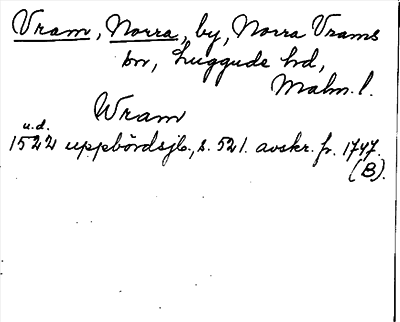 Vram, Norra, by, Norra Vrams
sn, Luggude hd,
Malm. l.
Wram
u.d.
1522 uppbördsjb., s. 521. avskr. fr. 1747.
(B).